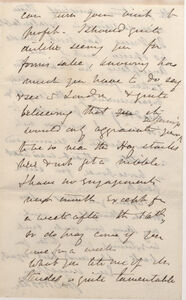 can turn your visit to
profit. I should quite
dislike seeing you for
forms sake, knowing how
much you have to do, say
& see in London, & quite
believing that
would only aggravate
to be so near the Hay
& not get a nibble.
I have no engagement
next month except for
a week after the
so do pray come if you
can for a week.
What you tell me of the
Studio is quite lamentable